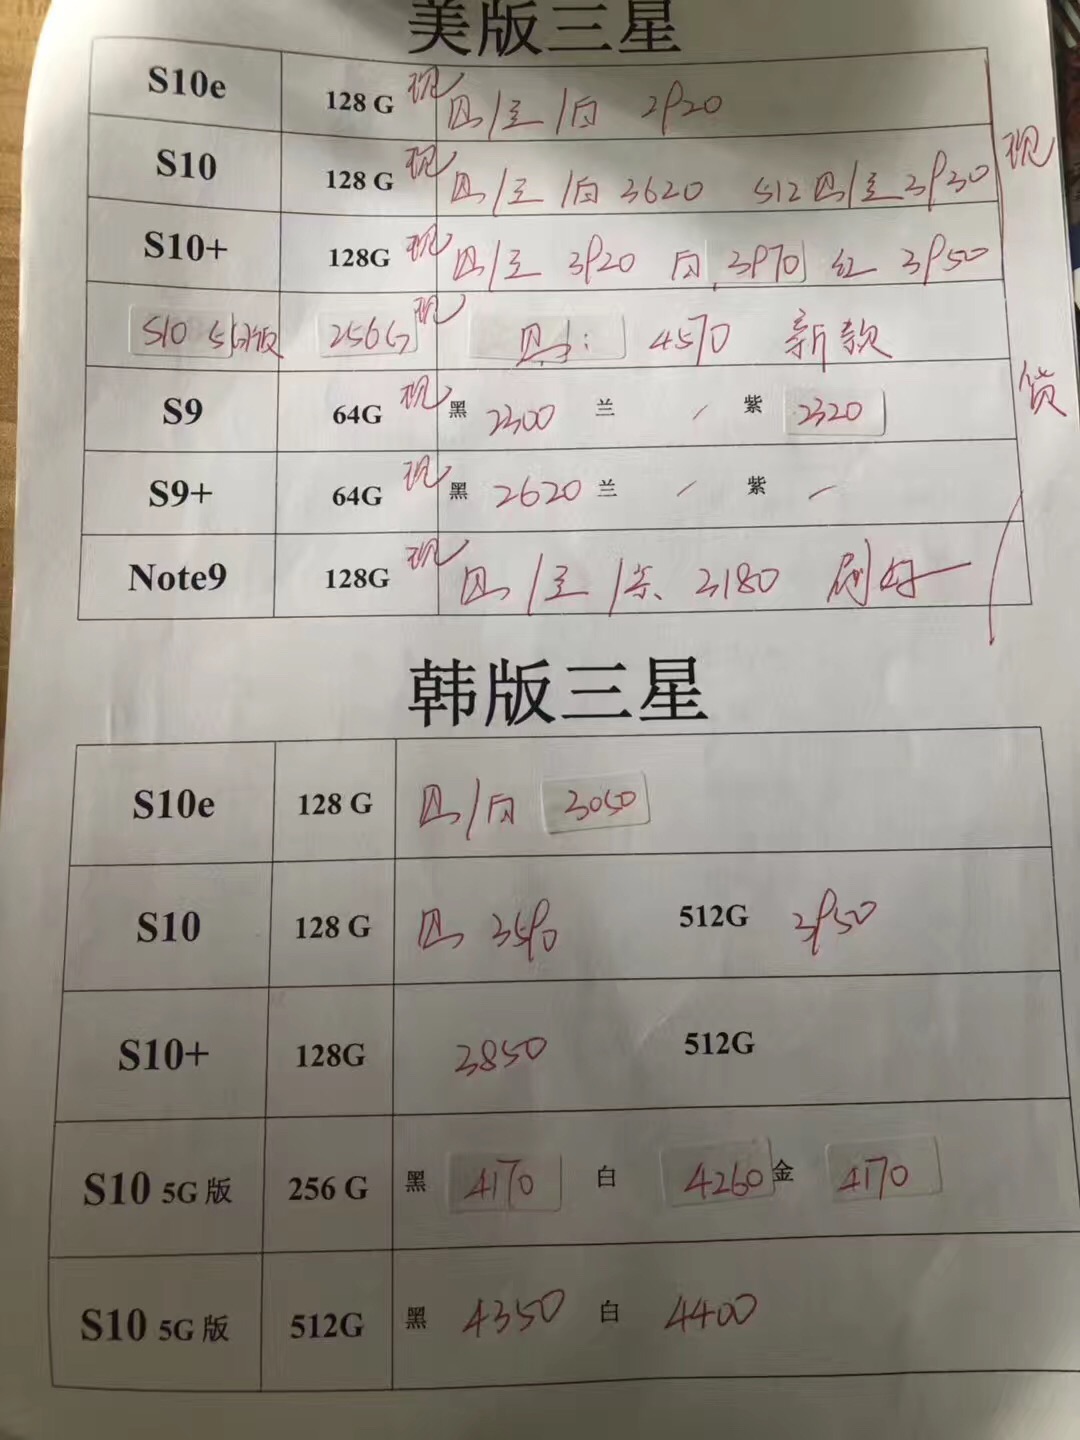 美版三星
S10e 128 G 现 黑/兰/白 2920
S10 128 G 现 黑/兰/白 3620 512黑/兰 3930
S10+ 128G 现 黑/兰 3920 白 3970 红 3950
S10 5G版 256G 现 黑: 4570 新款
S9 64G 现 黑 2300 兰 / 紫 2320
S9+ 64G 现 黑 2620 兰 / 紫 /
Note9 128G 现 黑/兰/紫 3180 刷好
现货
韩版三星
S10e 128 G 黑/白 3050
S10 128 G 黑 3590 512G 3950
S10+ 128G 3850 512G
S10 5G 版 256 G 黑 4170 白 4260 金 4170
S10 5G 版 512G 黑 4350 白 4400